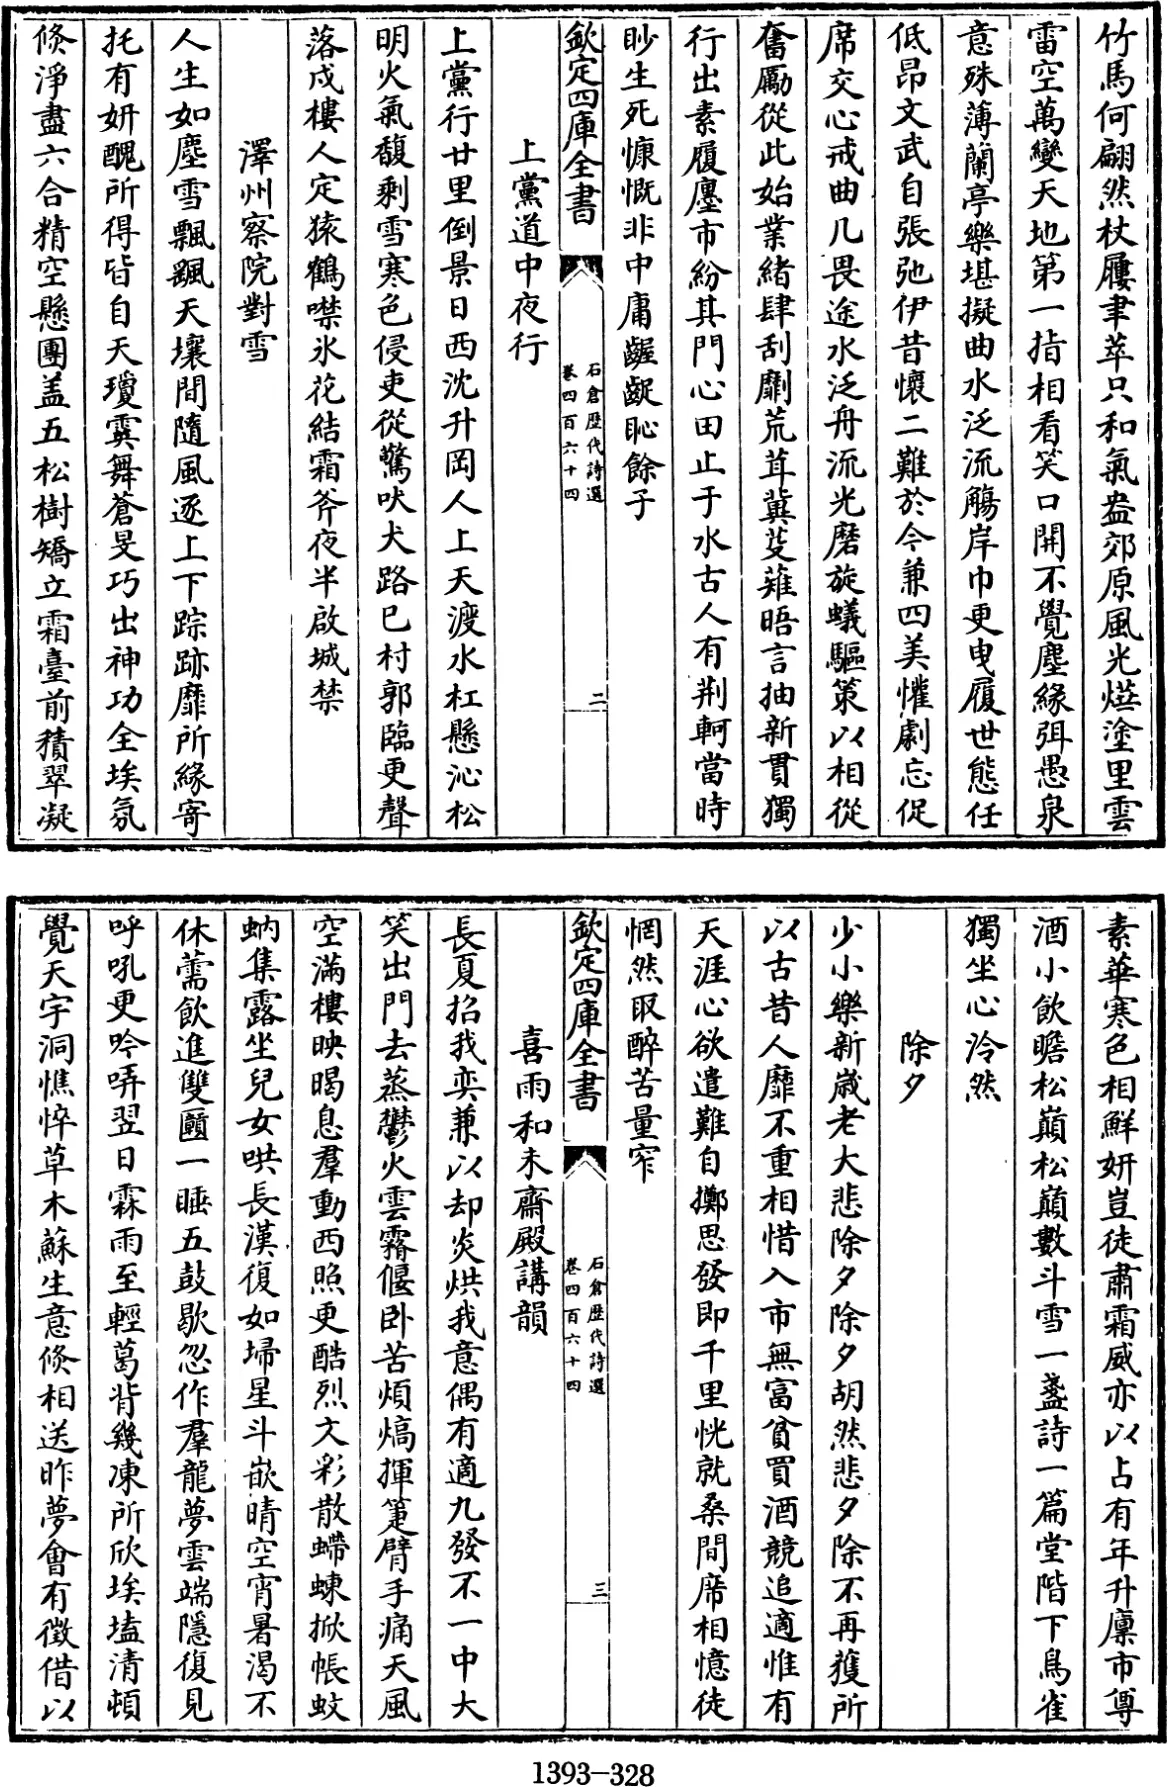 竹馬何翩然杖屨聿萃只和氣盎郊原風光燁塗里雲
雷空萬變天地第一指相看笑口開不覺塵緣弭愚泉
意殊薄蘭亭樂堪擬曲水泛流觴岸巾更曳履世態任
低昂文武自張弛伊昔懷二難於今兼四美懽劇忘促
席交心戒曲几畏途水泛舟流光磨旋蟻驅策以相從
奮勵從此始業緒肆刮劘荒茸冀芟薙晤言抽新貫獨
行出素履廛市紛其門心田止于水古人有荆軻當時
眇生死慷慨非中庸齷齪恥餘子
欽定四庫全書
石倉歷代詩選
卷四百六十四
二
上黨道中夜行
上黨行廿里倒景日西沈升岡人上天渡水杠懸沁松
明火氣馥剩雪寒色侵吏從驚吠犬路巳村郭臨更聲
落戍樓人定猿鶴噤氷花結霜斧夜半啟城禁
澤州察院對雪
人生如塵雪飄颻天壤間隨風逐上下踪跡靡所緣寄
托有妍醜所得皆自天瓊霙舞蒼旻巧出神功全埃氛
倏淨盡六合精空懸團盖五松樹矯立霜臺前積翠凝
素華寒色相鮮妍豈徒肅霜威亦以占有年升廪市尊
酒小飲瞻松巔松巔數斗雪一盞詩一篇堂階下鳥雀
獨坐心泠然
除夕
少小樂新歲老大悲除夕除夕胡然悲夕除不再獲所
以古昔人靡不重相惜入市無富貧買酒競追適惟有
天涯心欲遣難自擲思發即千里恍就桑間席相憶徒
惘然取醉苦量窄
欽定四庫全書
石倉歷代詩選
卷四百六十四
三
喜雨和未齋殿講韻
長夏招我奕兼以却炎烘我意偶有適九發不一中大
笑出門去蒸鬱火雲霿偃卧苦煩熇揮箑臂手痛天風
空滿樓映暍息羣動西照更酷烈文彩散螮蝀掀帳蚊
蚋集露坐兒女哄長漢復如埽星斗嵌晴空宵暑渴不
休薷飲進雙㔶一睡五鼓歇忽作羣龍夢雲端隱復見
呼吼更吟哢翌日霖雨至輕葛背幾凍所欣埃壒清頓
覺天宇洞憔悴草木蘇生意倏相送昨夢會有徵借以
1393-328